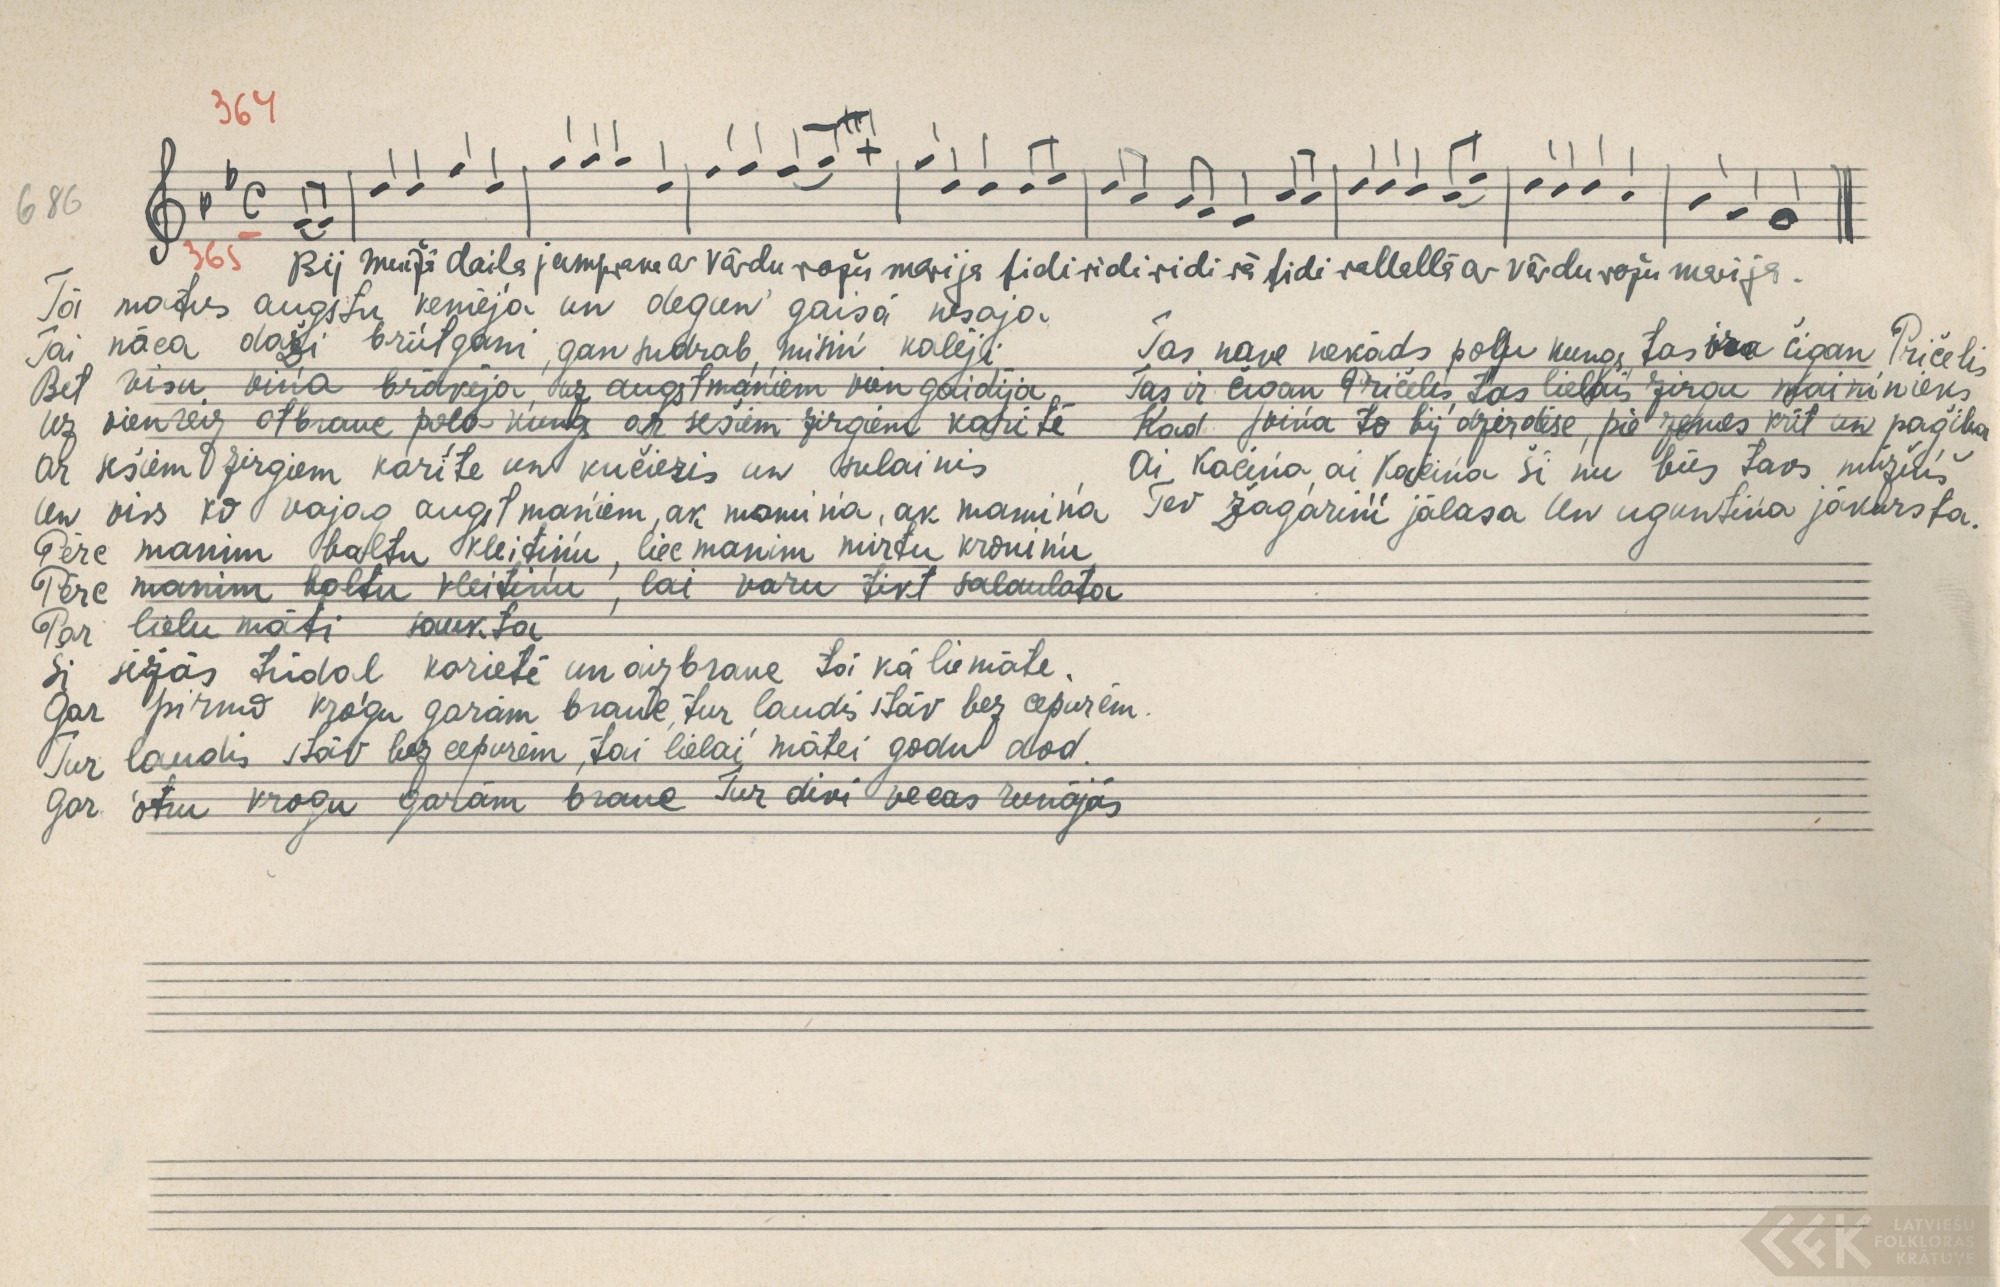 364
686
365
Bij muižā daiļa jumprava ar vārdu rožu marija tidiridiridi rā tidi rallallā ar vārdu rožu marija.
Tā matus augstu ķemēja un degun' gaisā nesaja
Tai nāca daži brūtgāni, gan sudrab, misiņ kalēji
Bet visu viņa brāķēja, uz augstmaņiem vien gaidīja
uz vienreiz atbrauc poļa kungs ar sešiem zirgiem karītē
ar sešiem zirgiem karīte un kučieris un sulainis
un viss ko vajag augstmaņiem, ak mamiņa, ak mamiņa
Pērc manim baltu kleitiņu, liec manim mirtu kroniņu
Pērc manim baltu kleitiņu, lai varu tikt salaulāta
Par lielu māti saukta
Šī sēžās tūdaļ karietē un aizbrauc tā kā liemāte.
Gar pirmo krogu garām brauc, tur laudis stāv bez cepurēm.
Tur laudis stāv bez cepurēm, tai lielai mātei godu dod.
Gar otru krogu garām brauc Tur divi vecas runājās
Tas nave nekāds poļu kungs, tas ira čigan Pričelis
Tas ir čigan Pričelis, tas lielais zirgu maininieks
Kad viņa to bij dzirdēse, pie zemes krīt un paģība
Ai Kačiņa, ai Kačiņa šī nu būs tavs mūžiņš
Tev žagariņi jālasa Un uguntiņa jākursta.
LATVIEŠU
FOLKLORAS
KRĀTUVE